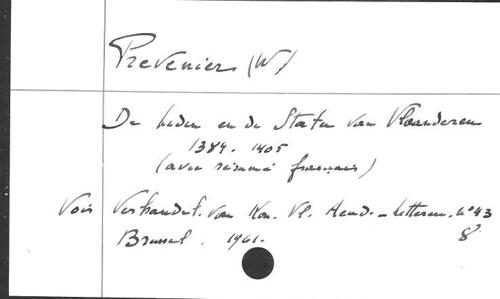 Prevenier (W)
De Leden en de Staten van Vlaanderen
1384. 1405
(avec résumé français)
Voir Verhandel. van Kon. Vl. Acad. - Letteren. n° 43
Brussel. 1961. 8°